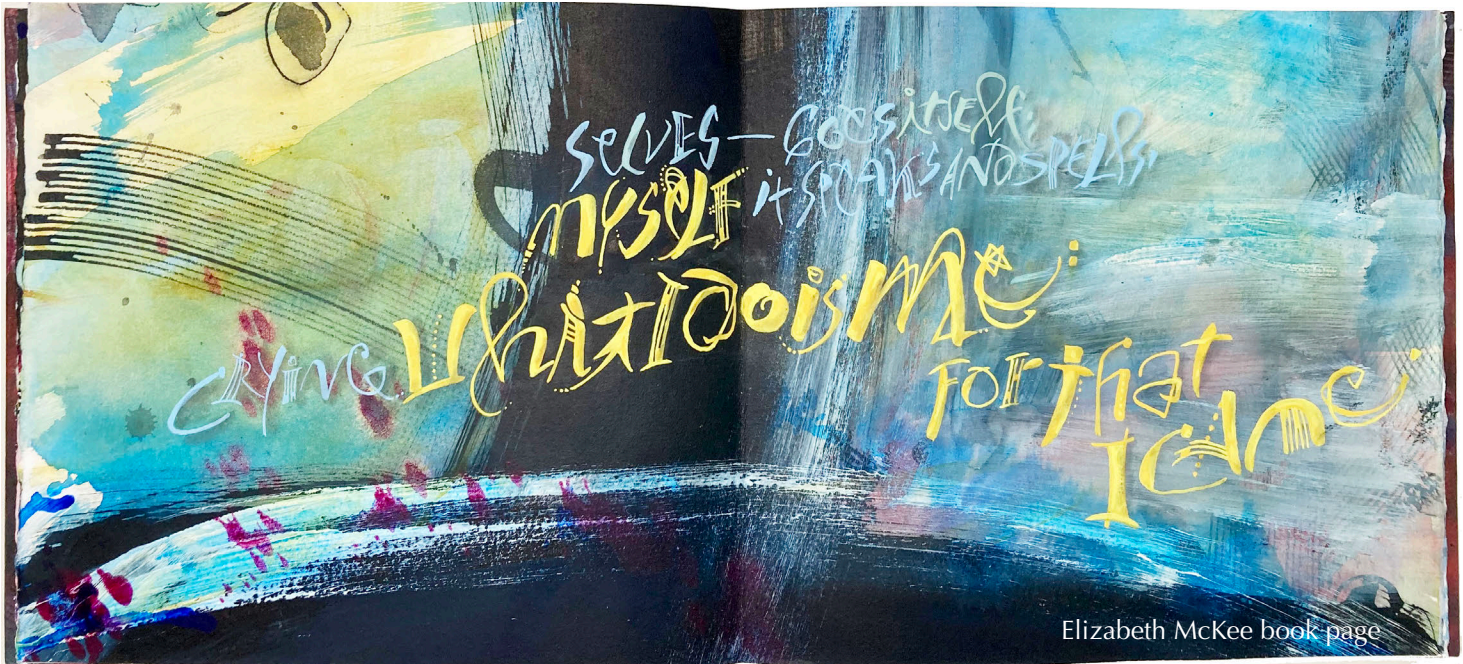 selVES — GOES itself;
MYSELF it SPEAKS AND SPELLS,
CRYING What I do is Me:
FOR that
I came.
Elizabeth McKee book page